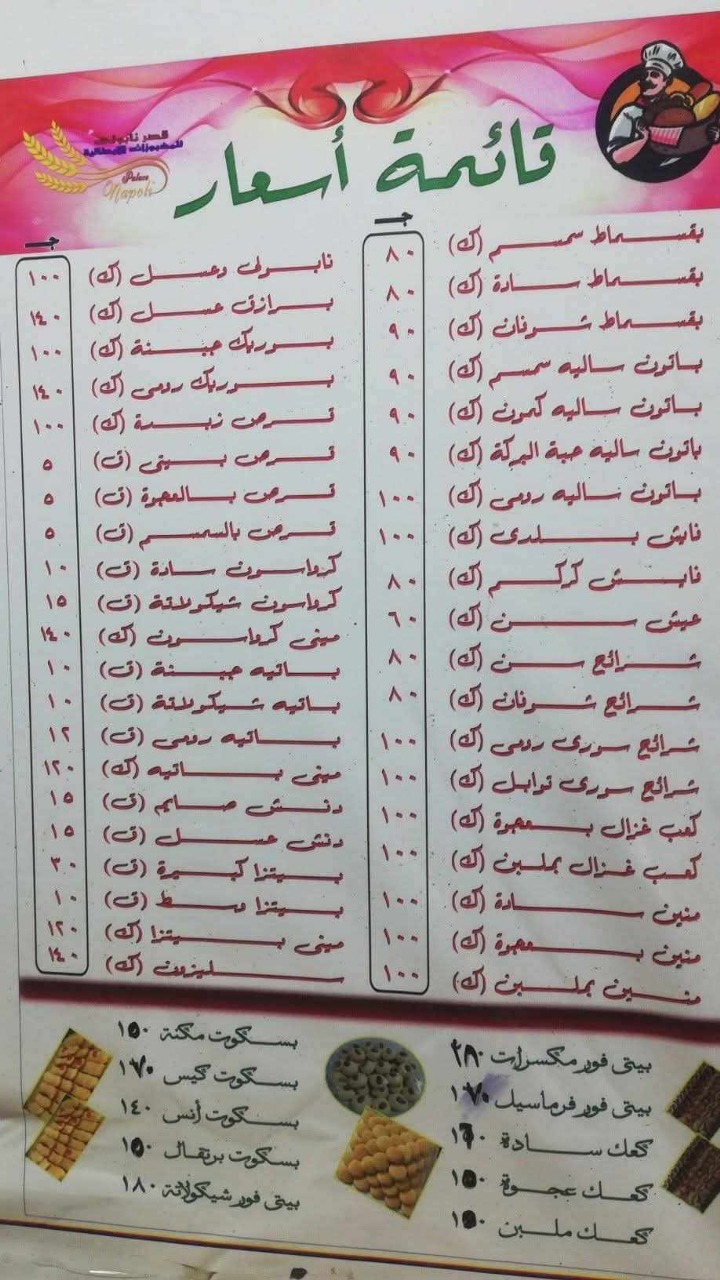 قصر نابولي
للمخبوزات الإيطالية
Palace
Napoli
قائمة أسعار
بقسماط سمسم (ك) ٨٠
بقسماط سادة (ك) ٨٠
بقسماط شوفان (ك) ٩٠
باتون ساليه سمسم (ك) ٩٠
باتون ساليه كمون (ك) ٩٠
باتون ساليه حبة البركة (ك) ٩٠
باتون ساليه رومى (ك) ١٠٠
فايش بلدى (ك) ١٠٠
فايش كركم (ك) ٨٠
عيش سن (ك) ٦٠
شرائح سن (ك) ٨٠
شرائح شوفان (ك) ٨٠
شرائح سورى رومى (ك) ١٠٠
شرائح سورى توابل (ك) ١٠٠
كعب غزال بعجوة (ك) ١٠٠
كعب غزال بملبن (ك) ١٠٠
منين سادة (ك) ١٠٠
منين بعجوة (ك) ١٠٠
منين بملبن (ك) ١٠٠
نابولى وعسل (ك) ١٠٠
برازق عسل (ك) ١٤٠
بوريك جبنة (ك) ١٠٠
بوريك رومى (ك) ١٤٠
قرص زبدة (ك) ١٠٠
قرص بينى (ق) ٥
قرص بالعجوة (ق) ٥
قرص بالسمسم (ق) ٥
كرواسون سادة (ق) ١٠
كرواسون شيكولاتة (ق) ١٥
مينى كرواسون (ك) ١٤٠
باتيه جبنة (ق) ١٠
باتيه شيكولاتة (ق) ١٠
باتيه رومى (ق) ١٢
مينى باتيه (ك) ١٢٠
دنش صايم (ق) ١٥
دنش عسل (ق) ١٥
بيتزا كبيرة (ق) ٣٠
بيتزا وسط (ق) ١٠
مينى بيتزا (ك) ١٢٠
سليزون (ك) ١٤٠
بيتى فور مكسرات ٢٨٠
بيتى فور فرماسيل ١٧٠
كعك سادة ١٦٠
كعك عجوة ١٥٠
كعك ملبن ١٥٠
بسكوت مكنة ١٥٠
بسكوت كيس ١٧٠
بسكوت أنس ١٤٠
بسكوت برتقال ١٥٠
بيتى فور شيكولاتة ١٨٠